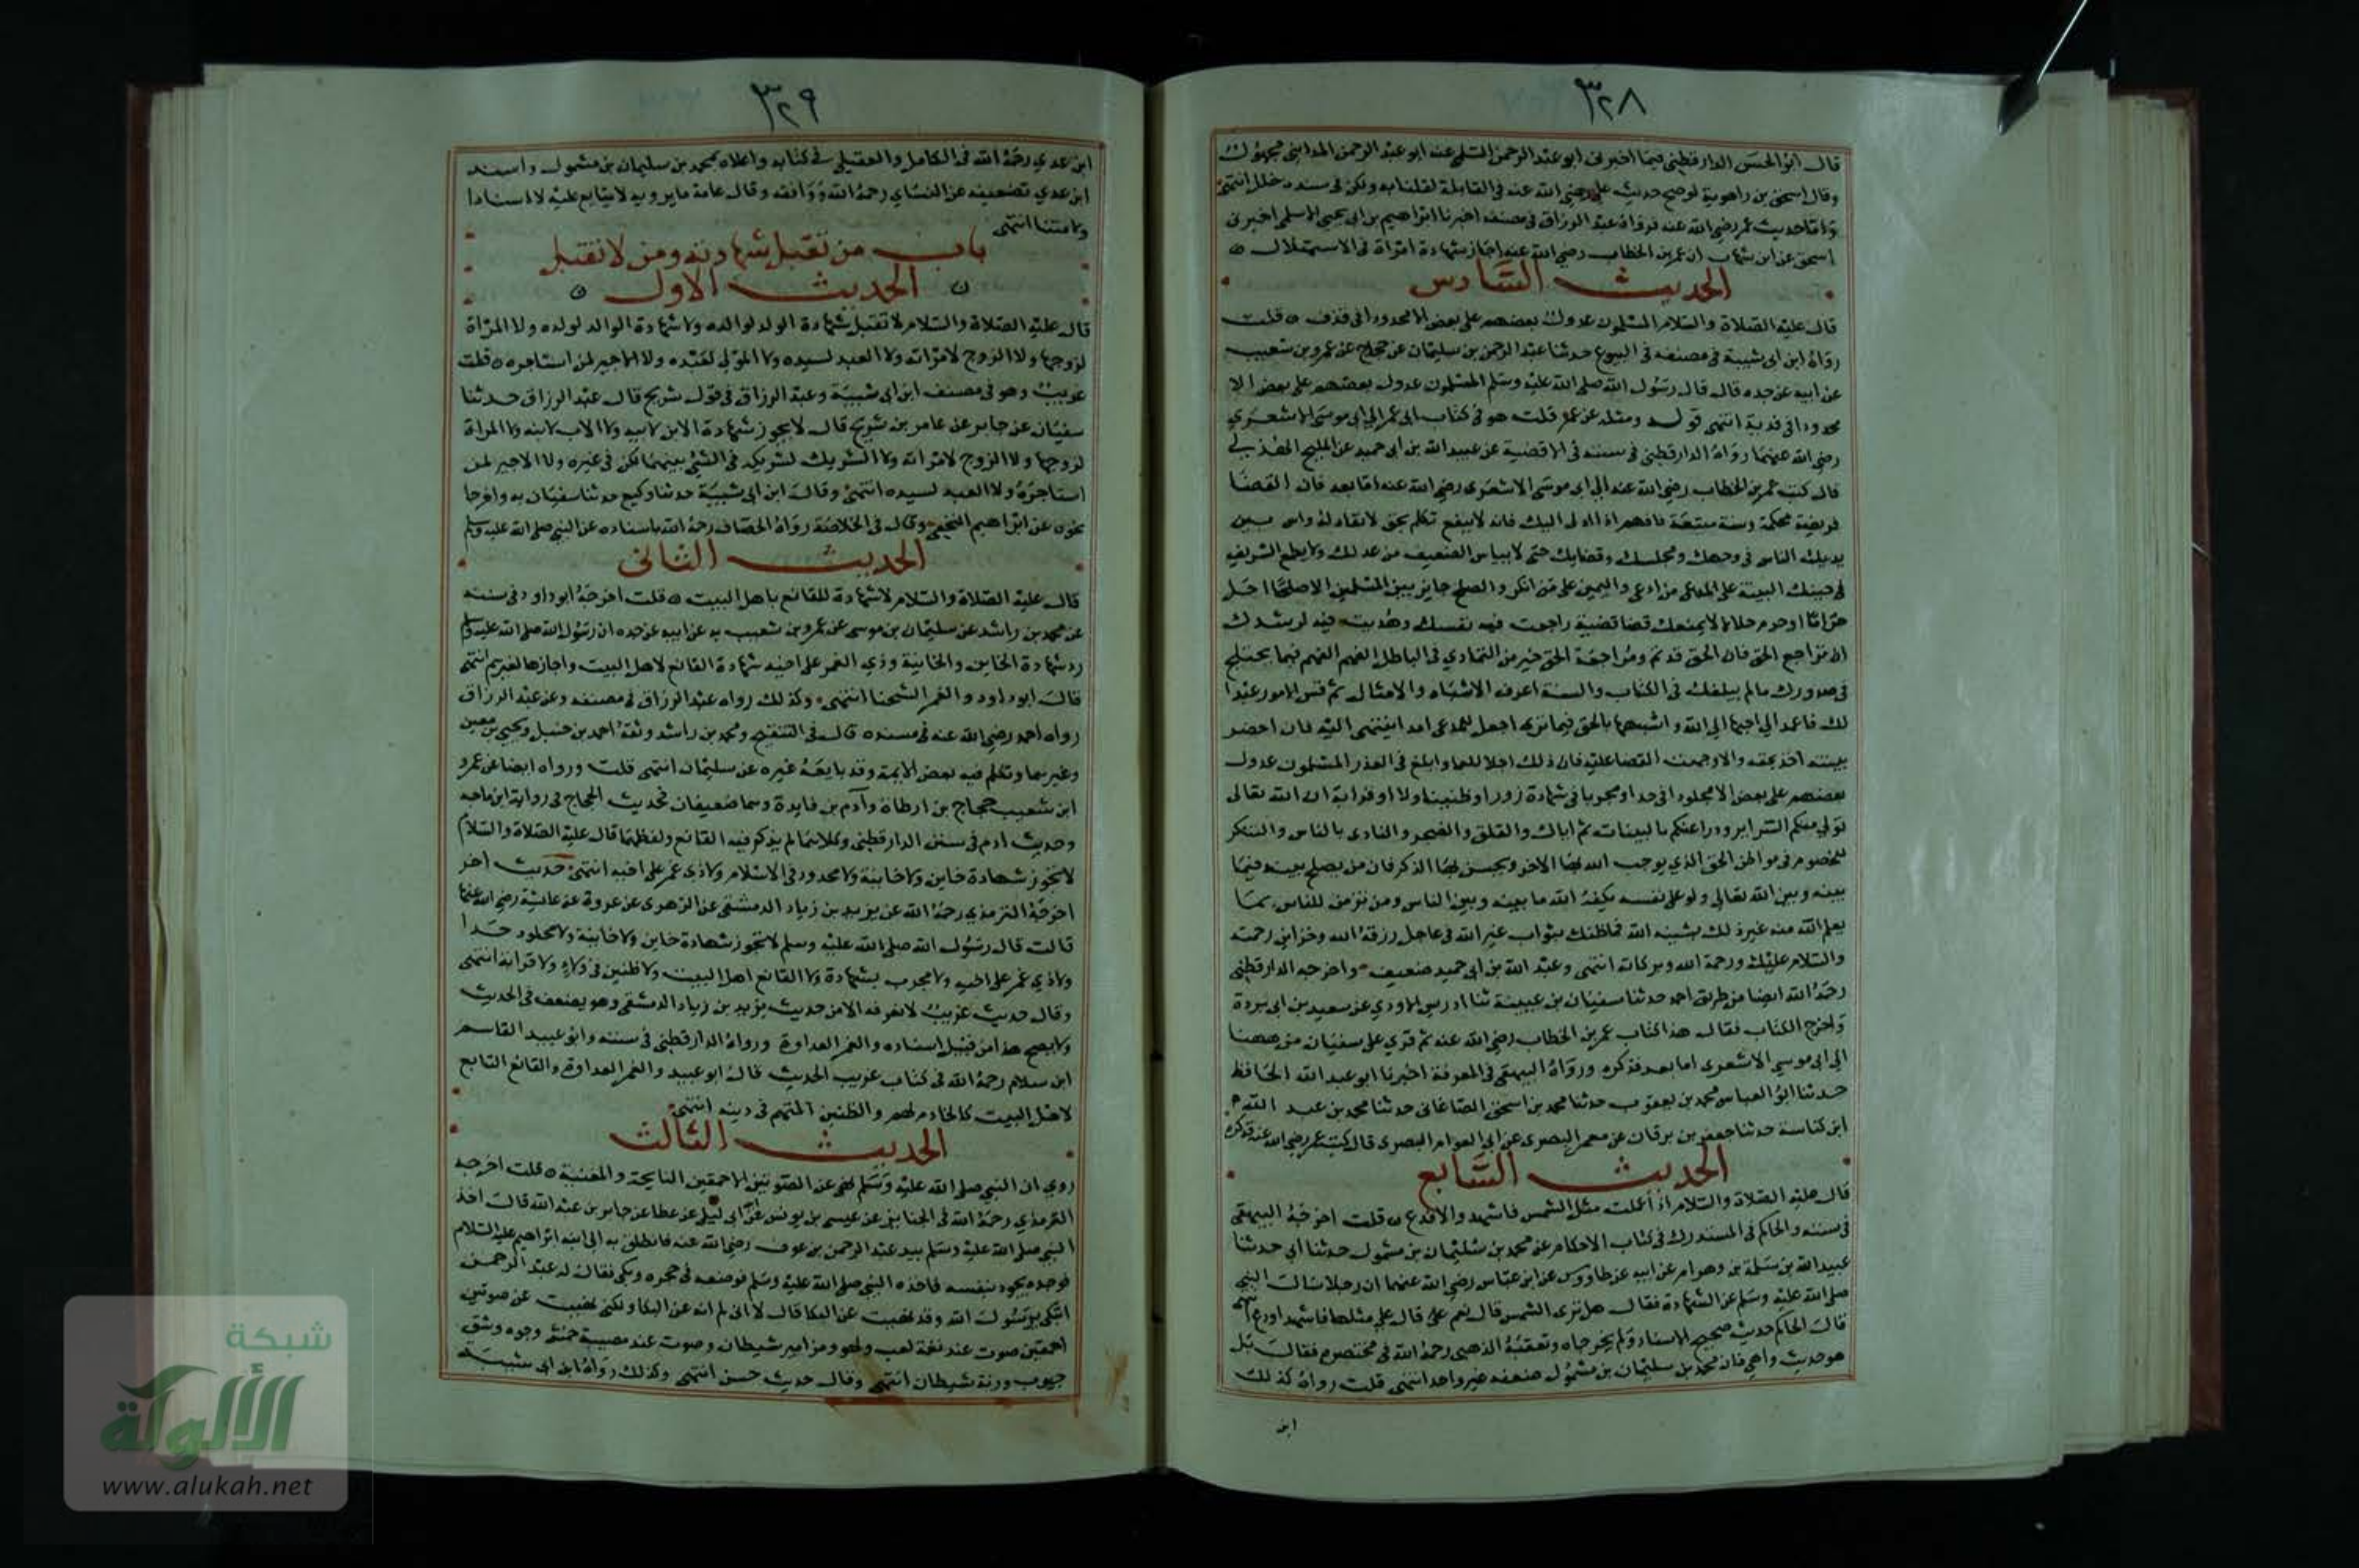 ٣٢٨
قال ابو الحسن الدارقطني فيما اخبرني ابو عبد الرحمن السلمي عنه ابو عبد الرحمن المدايني مجهول
وقال اسحق بن راهوية لو صح حديث علي رضي الله عنه في القابلة لقلنا به ولكن في سنده خلل انتهى
واما حديث عمر رضي الله عنه فرواه عبد الرزاق في مصنفه اخبرنا ابراهيم بن ابي يحيى الاسلمي اخبرني
اسحق عن ابن شهاب ان عمر بن الخطاب رضي الله عنه اجاز شهادة امراة في الاستهلال ه
الحديث السادس
قال عليه الصلاة والسلام المسلمون عدول بعضهم على بعض الا محدودا في قذف ه قلت
رواه ابن ابي شيبة في مصنفه في البيوع حدثنا عبد الرحمن بن سليمان عن حجاج عن عمرو بن شعيب
عن ابيه عن جده قال قال رسول الله صلى الله عليه وسلم المسلمون عدول بعضهم على بعض الا
محدودا في فدية انتهى قوله ومثله عن عمر قلت هو في كتاب ابي عمر الي ابي موسى الاشعري
رضي الله عنهما رواه الدارقطني في سننه في الاقضية عن عبيد الله بن ابي حميد عن المليح الهذلي
قال كتب عمر بن الخطاب رضي الله عنه الي ابي موسى الاشعري رضي الله عنه اما بعد فان القضا
فريضة محكمة وسنة متبعة فافهم اذا ادلى اليك فانه لا ينفع تكلم بحق لا نفاذ له واس بين
يديك الناس في وجهك ومجلسك وقضايك حتى لا يياس الضعيف من عدلك ولا يطمع الشريف
في حيفك البينة على المدعي من ادعى واليمين على من انكر والصلح جايز بين المسلمين الا صلحا احل
حراما او حرم حلالا لا يمنعك قضا قضيته راجعت فيه نفسك وهديت فيه لرشدك
ان تراجع الحق فان الحق قديم ومراجعة الحق خير من التمادي في الباطل الفهم الفهم فيما يختلج
في صدورك مالم يبلغك في الكتاب والسنة اعرف الاشباه والامثال ثم قس الامور عند
لك فاعمد الي احبها الي الله واشبهها بالحق فيما ترى اجعل للمدعي امدا ينتهى اليه فان احضر
بينته اخذ بحقه والا وجهت القضا عليه فان ذلك اجلا للعما وابلغ في العذر المسلمون عدول
بعضهم على بعض الا مجلودا في حد او مجربا في شهادة زور او ظنينا في ولا او قرابة ان الله تعالى
تولي منكم السراير ودرا عنكم بالبينات ثم اياك والقلق والضجر والتاذي بالناس والتنكر
للخصوم في مواطن الحق الذي يوجب الله بها الاجر ويحسن بها الذكر فان من يصلح نيته فيما
بينه وبين الله تعالى ولو على نفسه يكفه الله ما بينه وبين الناس ومن تزين للناس بما
يعلم الله منه غير ذلك يشينه الله فما ظنك بثواب غير الله في عاجل رزقه الله وخزاين رحمته
والسلام عليك ورحمة الله وبركاته انتهى وعبد الله بن ابي حميد ضعيف واخرجه الدارقطني
رحمه الله ايضا من طريق احمد حدثنا سفيان بن عيينة ثنا ادريس الاودي عن سعيد بن ابي بردة
واخرج الكتاب فقال هذا كتاب عمر بن الخطاب رضي الله عنه ثم قري على سفيان من ههنا
الي ابي موسى الاشعري اما بعد فذكره ورواه البيهقي في المعرفة اخبرنا ابو عبد الله الحافظ
حدثنا ابو العباس محمد بن يعقوب حدثنا محمد بن اسحق الصاغاني حدثنا محمد بن عبد الله
ابن كناسة حدثنا جعفر بن برقان عن معمر البصري عن ابي العوام البصري قال كتب عمر رضي الله عنه فذكره
الحديث السابع
قال عليه الصلاة والسلام اذا علمت مثل الشمس فاشهد والا فدع ه قلت اخرجه البيهقي
في سننه والحاكم في المستدرك في كتاب الاحكام عن محمد بن سليمان بن مشمول حدثنا ابي حدثنا
عبيد الله بن سلمة بن وهرام عن ابيه عن طاووس عن ابن عباس رضي الله عنهما ان رجلا سال النبي
صلى الله عليه وسلم عن الشهادة فقال هل ترى الشمس قال نعم قال على مثلها فاشهد او دع انتهى
قال الحاكم حديث صحيح الاسناد ولم يخرجاه وتعقبه الذهبي رحمه الله في مختصره فقال بل
هو حديث واهي فان محمد بن سليمان بن مشمول ضعفه غير واحد انتهى قلت رواه كذلك
ابن
٣٢٩
ابن عدي رحمه الله في الكامل والعقيلي في كتابه واعلاه بمحمد بن سليمان بن مشمول واسند
ابن عدي تضعيفه عن النساي رحمه الله ووافقه وقال عامة ما يرويه لا يتابع عليه لا اسنادا
ولا متنا انتهى
باب من تقبل شهادته ومن لا تقبل
ه الحديث الاول ه
قال عليه الصلاة والسلام لا تقبل شهادة الولد لوالده ولا شهادة الوالد لولده ولا المراة
لزوجها ولا الزوج لامراته ولا العبد لسيده ولا المولى لعبده ولا الاجير لمن استاجره ه قلت
غريب وهو في مصنف ابن ابي شيبة وعبد الرزاق في قول شريح قال عبد الرزاق حدثنا
سفيان عن جابر عن عامر بن شريح قال لا يجوز شهادة الابن لابيه ولا الاب لابنه ولا المراة
لزوجها ولا الزوج لامراته ولا الشريك لشريكه في الشي بينهما لكن في غيره ولا الاجير لمن
استاجره ولا العبد لسيده انتهى وقال ابن ابي شيبة حدثنا وكيع حدثنا سفيان به واخرجا
نحوه عن ابراهيم النخعي وقال في الخلاصة رواه الخصاف رحمه الله باسناده عن النبي صلى الله عليه وسلم
الحديث الثاني
قال عليه الصلاة والسلام لا شهادة للقانع باهل البيت ه قلت اخرجه ابو داود في سننه
عن محمد بن راشد عن سليمان بن موسى عن عمرو بن شعيب به عن ابيه عن جده ان رسول الله صلى الله عليه وسلم
رد شهادة الخاين والخاينة وذي الغمر على اخيه شهادة القانع لاهل البيت واجازها لغيرهم انتهى
قال ابو داود والغمر الشحنا انتهى وكذلك رواه عبد الرزاق في مصنفه وعن عبد الرزاق
رواه احمد رضي الله عنه في مسنده قال في التنقيح ومحمد بن راشد وثقه احمد بن حنبل ويحيى بن معين
وغيرهما وتكلم فيه بعض الايمة وقد تابعه غيره عن سليمان انتهى قلت ورواه ايضا عن عمرو
ابن شعيب حجاج بن ارطاة وآدم بن فايدة وهما ضعيفان فحديث الحجاج في رواية ابن ماجه
وحديث ادم في سنن الدارقطني وكلاهما لم يذكر فيه القانع ولفظهما قال عليه الصلاة والسلام
لا تجوز شهادة خاين ولا خاينة ولا محدود في الاسلام ولا ذي غمر على اخيه انتهى حديث اخر
اخرجه الترمذي رحمه الله عن يزيد بن زياد الدمشقي عن الزهري عن عروة عن عايشة رضي الله عنها
قالت قال رسول الله صلى الله عليه وسلم لا تجوز شهادة خاين ولا خاينة ولا مجلود حدا
ولا ذي غمر على اخيه ولا مجرب بشهادة ولا القانع اهل البيت ولا ظنين في ولاء ولا قرابة انتهى
وقال حديث غريب لا نعرفه الا من حديث يزيد بن زياد الدمشقي وهو يضعف في الحديث
ولا يصح هذا من قبل اسناده والغمر العداوة ورواه الدارقطني في سننه وابو عبيد القاسم
ابن سلام رحمه الله في كتاب غريب الحديث قال ابو عبيد والغمر العداوة والقانع التابع
لاهل البيت كالخادم لهم والظنين المتهم في دينه انتهى
الحديث الثالث
روي ان النبي صلى الله عليه وسلم نهى عن الصوتين الاحمقين النايحة والمغنية ه قلت اخرجه
الترمذي رحمه الله في الجنايز عن عيسى بن يونس عن ابي ليلى عن عطا عن جابر بن عبد الله قال اخذ
النبي صلى الله عليه وسلم بيد عبد الرحمن بن عوف رضي الله عنه فانطلق به الى ابنه ابراهيم عليه السلام
فوجده يجود بنفسه فاخذه النبي صلى الله عليه وسلم فوضعه في حجره وبكى فقال له عبد الرحمن
اتبكي يا رسول الله وقد نهيت عن البكا قال لا اني لم انه عن البكا ولكني نهيت عن صوتين
احمقين صوت عند نغمة لعب ولهو ومزامير شيطان وصوت عند مصيبة خمش وجوه وشق
جيوب ورنة شيطان انتهى وقال حديث حسن انتهى وكذلك رواه ابن ابي شيبة
شبكة
الألوكة
www.alukah.net